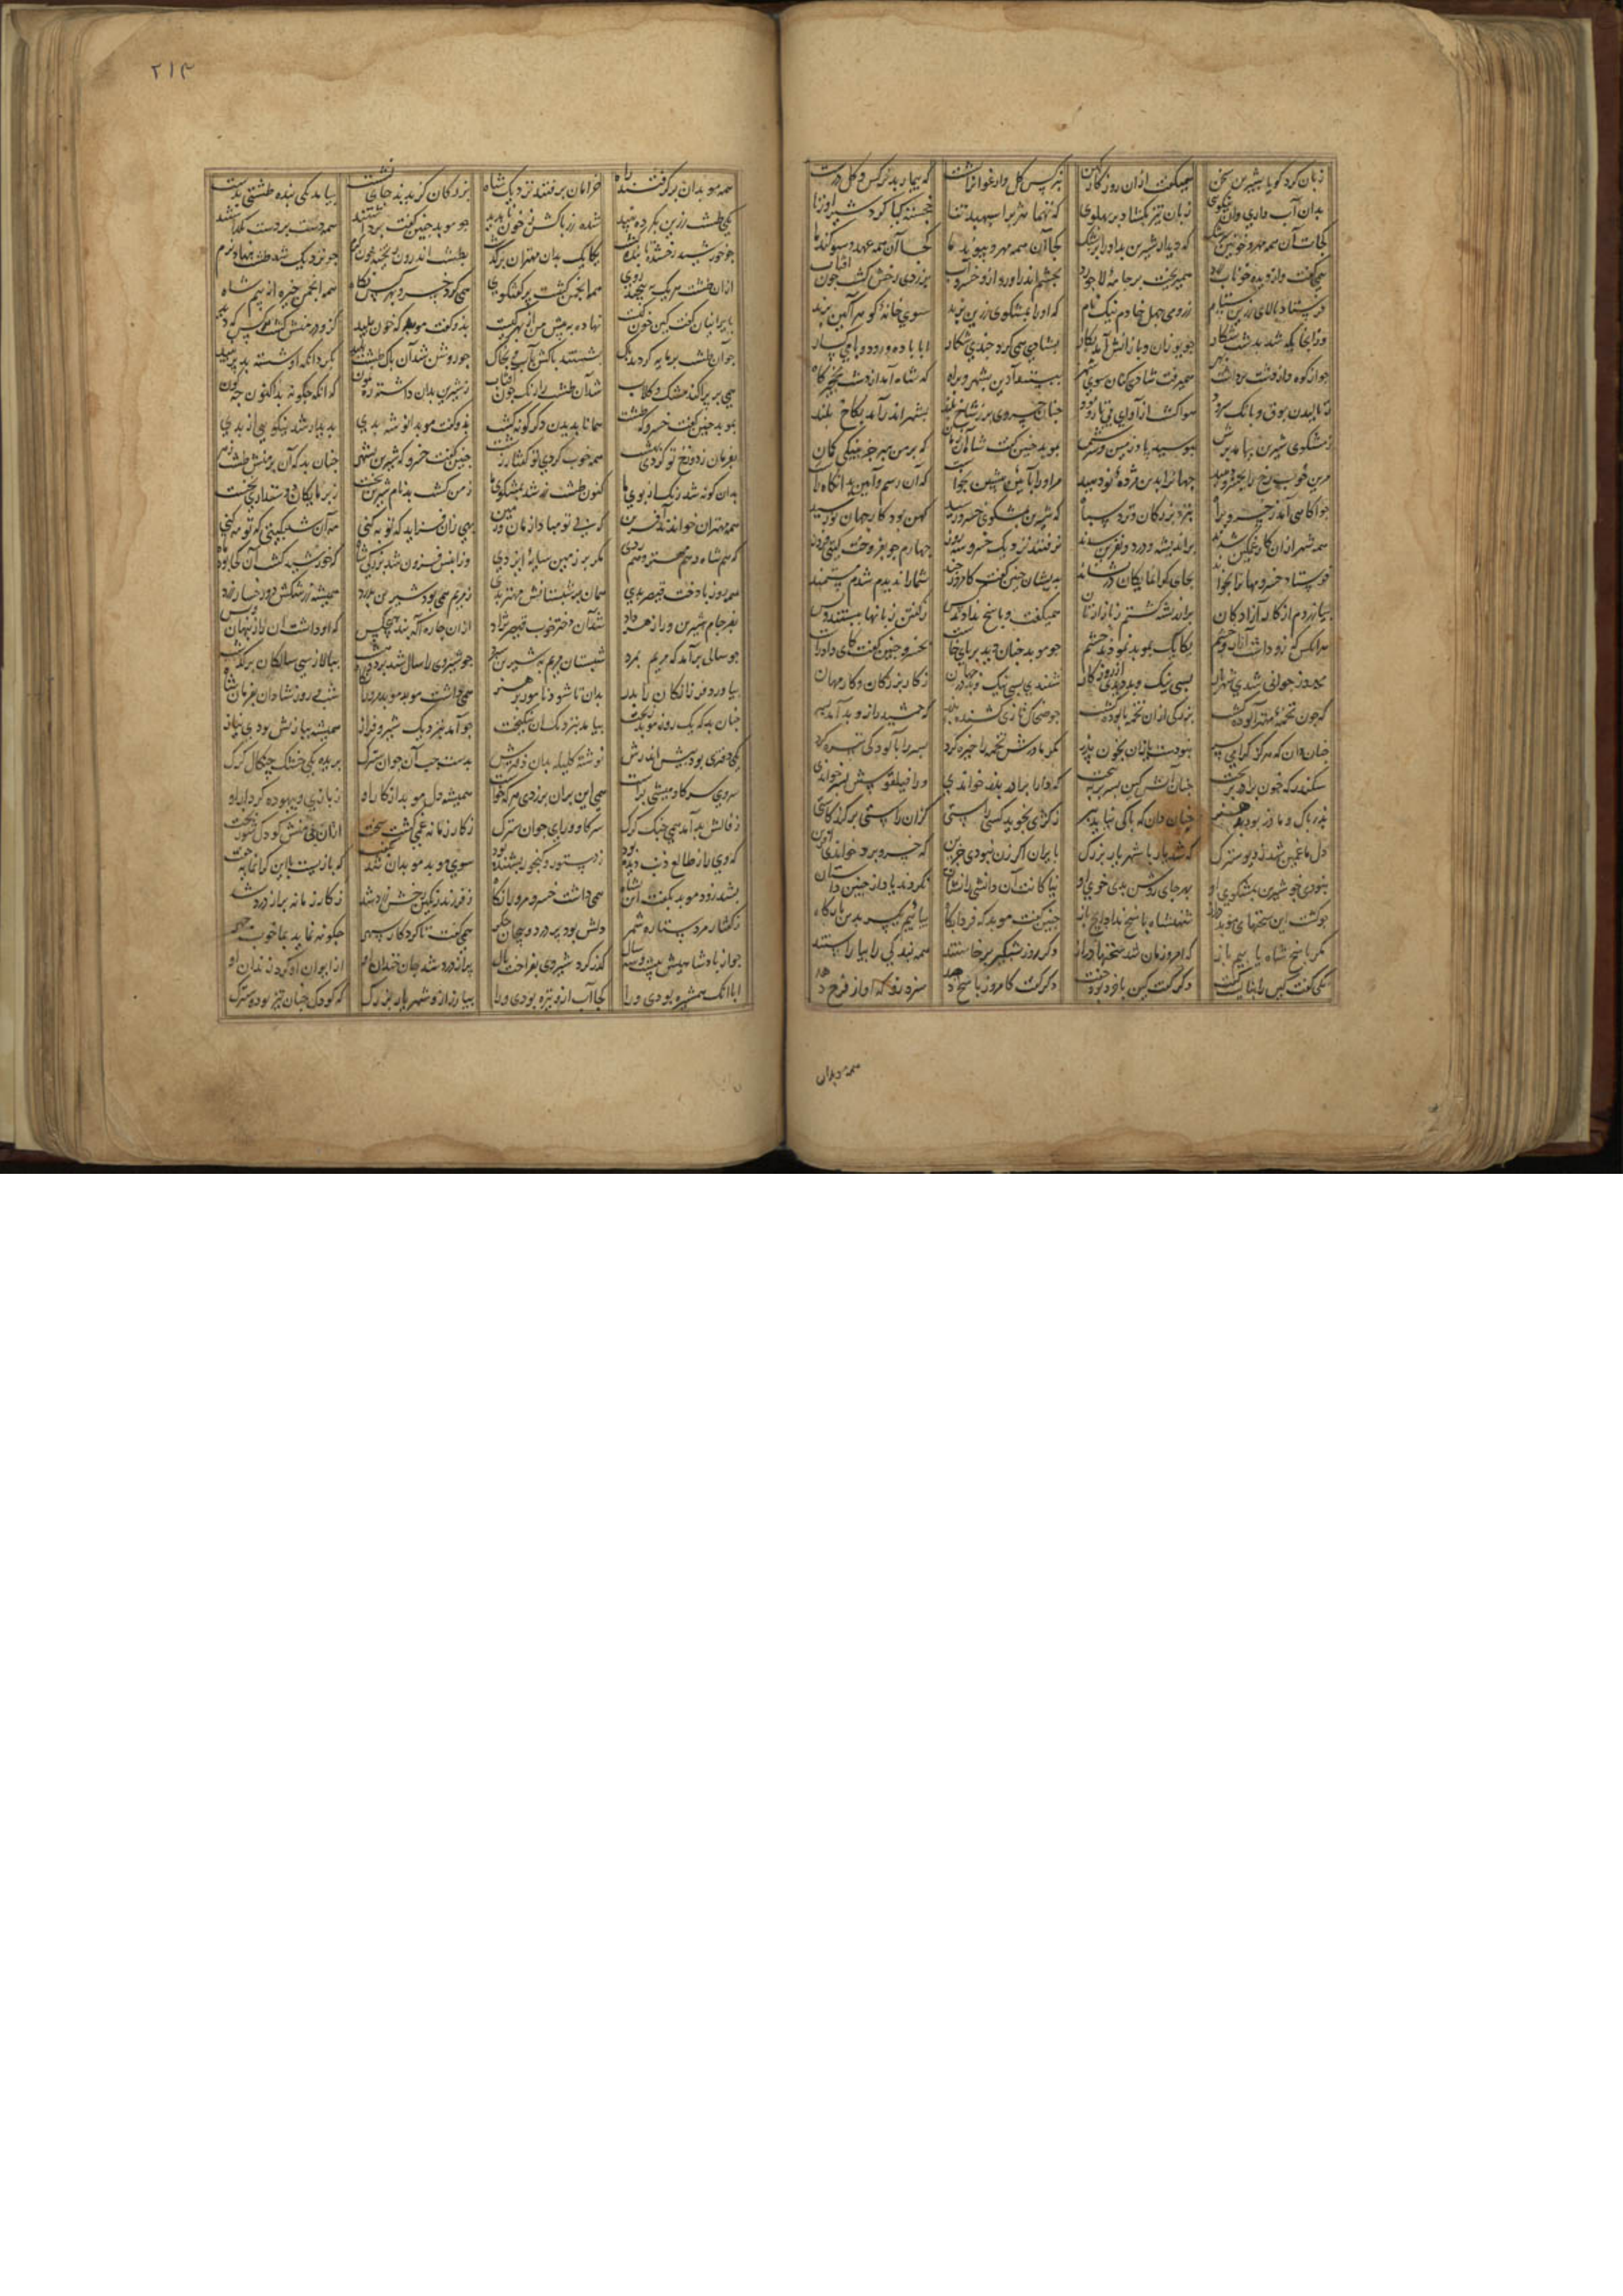 زبان کرد کویا بشیرین سخن همیکفت ازان روزکار کهن بنرکس کل و ارغوانرا بشست که بیمار بد نرکس و کل درست
بدان آب داری وان نیکوی زبان تیز بکشاد بر پهلوی که تهما هژبرا سپهبد تنا خجسته کیا کرد شیراوژنا
کجات آن همه مهر و خونین سرشک که دیدار شیرین بد او را پزشک کجا آن همه مهر و پیوند ما کجا آن همه عهد و سوکند ما
همی کفت و از دیده خوناب زرد همیریخت بر جامه لاجورد بچشم اندر آورد ازو خسرو آب بزردی رخش کشت چون آفتاب
فرستاد بالای زرین ستام ز رومی چهل خادم نیک نام که او را بمشکوی زرین برند سوی خانه کوهر آکین برند
وزانجایکه شد بدشت شکار چو یوزان و بازانش آمد بکار بشادی همی کرد چندی شکار ابا باده و رود و با میکسار
چو از کوه و از دشت برداشت بهر همیرفت شادی کنان سوی شهر ببستند آذین بشهر و براه که شاه آمد از دشت نخچیرکاه
ز نالیدن بوق و بانک سرود هوا کشت از آوای بی تار و پود چنان خسروی برز شاخ بلند بشهر اندر آمد بکاخ بلند
ز مشکوی شیرین بیامد برش ببوسید پا و زمین و سرش بموبد چنین کفت شاه آن زمان که بر من مبر جز بنیکی کمان
مرین خوب رخ را بخسرو دهید جهانرا بدین مژده نو دهید مر او را بآئین پیشین بخواست که آن رسم و آیین بد آنکاه راست
چو آکاهی آمد ز خسرو براه بنزد بزرکان و نزد سپاه که شیرین بمشکوی خسرو رسید کهن بود کار جهان نو رسید
همه شهر ازان کار غمکین شدند پر اندیشه و درد و نفرین شدند نرفتند نزدیک خسرو سه روز چهارم چو بفروخت کیتی فروز
فرستاد خسرو مهانرا بخواند بجای کرانمایکان درنشاند بدیشان چنین کفت کامروز چند شما را ندیدم شدم مستمند
بیازردم از کار آزادکان براندیشه کشتم ز همیکفت و پاسخ ندادند کس ز کفتن زبانها ببستند و بس
هرانکس که زو داشت آزار و خشم یکایک بموبد نمودند چشم چو موبد چنان دید بر پای خاست بخسرو چنین کفت کای راد راست
بروز جوانی شدی شهریار بسی نیک و بد دیدی از روزکار شنیدی بسی نیک و بد در جهان ز کار بزرکان و کار مهان
که چون تخمه مهتر آلوده کشت بزرکی ازان تخمه پالوده کشت چو ضحاک تازی کشنده پدر که جمشید را زو بد آمد بسر
چنان دان که هرکز کرامی پسر نبودست یازان بخون پدر مکر مادرش تخمه را خیره کرد پسر را بآلودکی تیره کرد
سکندر که خون برادر بریخت چنان آتش کین بسر بر ببیخت که دارا برادر بدو خواندی ورا فیلقوسش پسر خواندی
پدر پاک و مادر بود بی هنر چنان دان که پاکی نیاید ببر ز کژی نجوید کسی راستی کزان راستی برکند کاستی
دل ما غمین شد ز دیو سترک که شد یار با شهریار بزرک بایران اکر زن نبودی جزین که خسرو برو خواندی آفرین
نبودی چو شیرین بمشکوی او بهر جای روشن بدی خوی او نیاکانت آن دانشی راستان نکردند یاد از چنین داستان
چو کشت این سخنهای موبد دراز شهنشاه پاسخ نداد ایچ باز چنین کفت موبد که فردا پکاه بیائیم یکسر بدین بارکاه
مکر پاسخ شاه یابیم باز که امروزمان شد سخنها دراز دکر روز شبکیر برخاستند همه بندکی را بیاراستند
یکی کفت کین را نبایست کفت دکر کفت کین با خرد بود جفت دکر کفت کامروز پاسخ دهد سزد زو که آواز فرخ دهد
همه موبدان
۲۱۴
همه موبدان برکرفتند راه خرامان برفتند نزدیک شاه بزرکان کزیدند جای نشست بیامد یکی بنده طشتی بدست
یکی طشت زرین کرده پلید شده زر پاکش ز خون ناپدید چو موبد چنین کفت
چو خورشید رخشنده یکایک بدان مهتران برکذشت بطشت اندرون ریخته خون کرم چو نزدیک شد طشت بنهاد نرم
ازان طشت هر یک بپیچید روی همه انجمن کشت پر کفتکوی همی کرد خسرو بهر کس نکاه همه انجمن خیره از بیم شاه
بایرانیان کفت کین خون کیست نهاده به پیش من از بهر چیست بدو کفت موبد که خون پلید کزو دشمنش کشت هر کس که دید
شستند پاکش بآب و بخاک چو روشن شد آن پاک طشت پلید بکرد آنکه او شسته بد پر نبید
همی بر پراکند مشک و کلاب شد آن طشت بی رنک چون آفتاب ز شیرین بدان داستان که آنکه چکونه بد اکنون چه کون
بموبد چنین کفت خسرو که طشت همانا بد این کر دکرکونه کشت بدو کفت موبد انوشه بدی پدیدار شد نیکوی از بدی
بفرمان ز دوزخ تو کردی بهشت همه خوب کردی تو کفتار زشت چنین کفت خسرو که شیرین بشهر چنان بد که آن بی منش طشت زهر
بدان کونه شد رنک از بوی ما کنون طشت می شد بمشکوی ما ز من کشت بدنام شیرین نخست ز پرمایکان دوستداری نجست
همه مهتران خواندند آفرین که بی تو مبادا زمان و زمین بهی زان فزاید که تو به کنی مه آن شد بکیتی که تو مه کنی
که هم شاه و هم مهتر و هم ردی مکر بر زمین سایه ایزدی وزان پس فزون شد بزرکی شاه که خورشید کشت آنکه بود ماه
همه روز با دخت قیصر بدی همان بر شبستانش مهتر بدی ز مریم همی بود شیرین بدرد همیشه ز رشکش دو رخساره زرد
بفرجام شیرین ورا زهر داد شد آن دختر خوب قیصر نژاد ازان چاره آکه نبد هیچکس که او داشت آن راز پنهان و بس
چو سالی برآمد که مریم بمرد شبستان مریم به شیرین سپرد چو شیروی را سال شد بر دو هشت ببالا ز سی سالکان برکذشت
بیاورد فرزانکان را پدر بدان تا شود نامور پر هنر همی داشت موبد مر او را نکاه شب و روز شادان بفرمان شاه
چنان بد که یک روز موبد ز تخت بیامد بنزدیک آن نیکبخت چو آمد بنزدیک شیرو فراز همیشه ببازیش بودی نیاز
یکی دفتری بود پیش اندرش نوشته کلیله بدان دفترش بدست چپ آن جوان سترک بریده یکی خشک چنکال کرک
سروی سر کاومیشی براست همی این بران برزدی هر که خواست همیشه دل موبد از کار اوی ز بازی و بیهوده کردار اوی
ز فالش بد آمد همی چنک کرک سر کاو و رای جوان سترک ز کار زمانه غمی کشت سخت ازان بی منش کودک شوربخت
که وی را ز طالع بد دیده بود ز دستور و کنجور بشنیده بود سوی موبد موبدان شد که بازیست با این کرانمایه جفت
بشد زود موبد بکفت این بشاه همی داشت خسرو مر او را نکاه ز فرزند رنکین رخش زرد شد ز کار زمانه پر از درد شد
ز کفتار مرد ستاره شمر دلش بود پر درد و پیچان جکر همی کفت تا کردکار سپهر چکونه نماید بما خوب چهر
چو از پادشاهیش بیست و سه سال کذر کرد شیروی بفراخت یال پر آزرد شد جان خندان او از ایوان او کرد زندان او
ابا آنک همشیره بودی ورا کجا آب ازو تیره بودی ورا بیازرد ازو شهریار بزرک که کودک چنان تیز بود و سترک